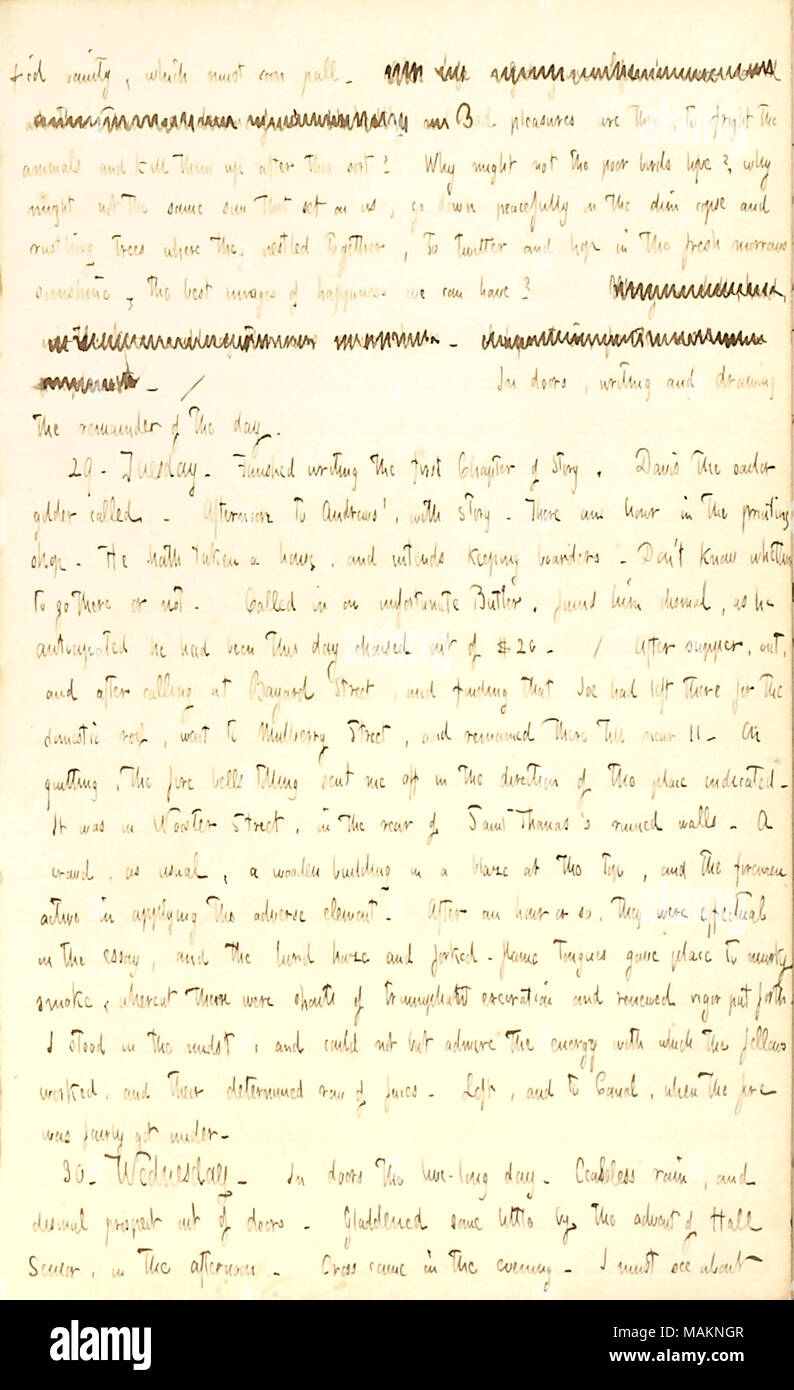 vanity, which must soon pall.
pleasures are they, to fright the
animals and kill them up after this sort? Why might not the poor birds live?, why
might not the same sun that set on us, go down peacefully on the dim copse and
rustling trees where they nestled together, to twitter and hop in the fresh morrows
sunshine, the best images of happiness we can have?
In doors, writing and drawing
the remainder of the day.
29. Tuesday. Finished writing the first Chapter of Story. Davis the
gilder called. Afternoon to Andrews', with Story. There an hour in the printing
shop. He hath taken a house, and intends keeping boarders. Don't know whether
to go there or not. Called in on unfortunate Butler, found him dismal, as he
anticipated he had been this day out of $20. / After supper, out,
and after calling at Bayard Street, and finding that Joe had left there for the
domestic roof, went to Mulberry Street, and remained there till near 11. On
quitting, the fire bells tolling sent me off in the direction of the place indicated.
It was in Wooster Street, in the rear of Saint Thomas's ruined walls. A
crowd, as usual, a wooden building in a blaze at the top, and the firemen
active in applying the adverse element. After an hour or so, they were effectual
in the essay, and the lurid haze and forked-flame tongues gave place to murky
smoke, whereat there were shouts of triumphant execration and renewed vigor put forth.
I stood in the midst, and could not but admire the energy with which the fellows
worked, and their determined row of faces. Left, and to Canal, when the fire
was fairly got under.
30. Wednesday. In doors the live-long day. Ceaseless rain, and
dismal prospect out of doors. Gladdened some little by the advent of Hall
Senior, in the afternoon. Cross came in the evening. I must see about
alamy
Image ID: MAKNGR
www.alamy.com